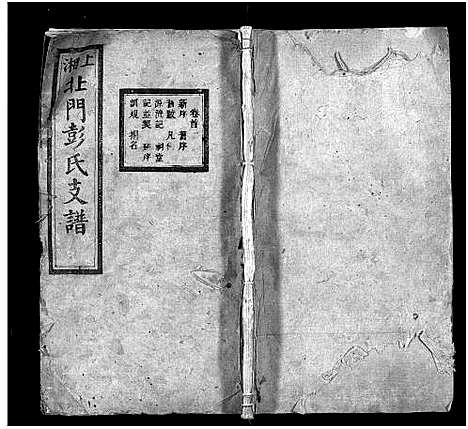 上湘
北門彭氏支譜
卷首
新序 舊序
凡例
源流記 祠堂
記 墓契
訓規 捐名